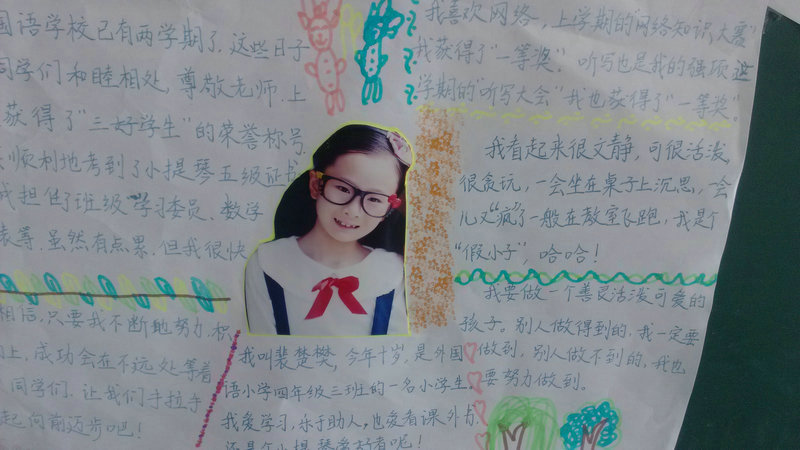 国语学校已有两学期了,这些日子
同学们和睦相处,尊敬老师.上
获得了"三好学生"的荣誉称号.
顺利地考到了小提琴五级证书
我担任了班级学习委员、数学
表等,虽然有点累,但我很快
相信,只要我不断地努力,积
上,成功会在不远处等着
同学们,让我们手拉手
起向前迈步吧!
我喜欢网络,上学期的"网络知识大赛"
我获得了"一等奖",听写也是我的强项,这
学期的"听写大会"我也获得了"一等奖"。
我看起来很文静,可很活泼
很贪玩,一会坐在桌子上沉思,一会
儿又"疯"了一般在教室飞跑,我是个
"假小子",哈哈!
我要做一个善良活泼可爱的
孩子。别人做得到的,我一定要
做到,别人做不到的,我也
要努力做到。
我叫裴楚樊,今年十岁,是外国
语小学四年级三班的一名小学生,
我爱学习,乐于助人,也爱看课外书,
还是个小提琴爱好者呢!